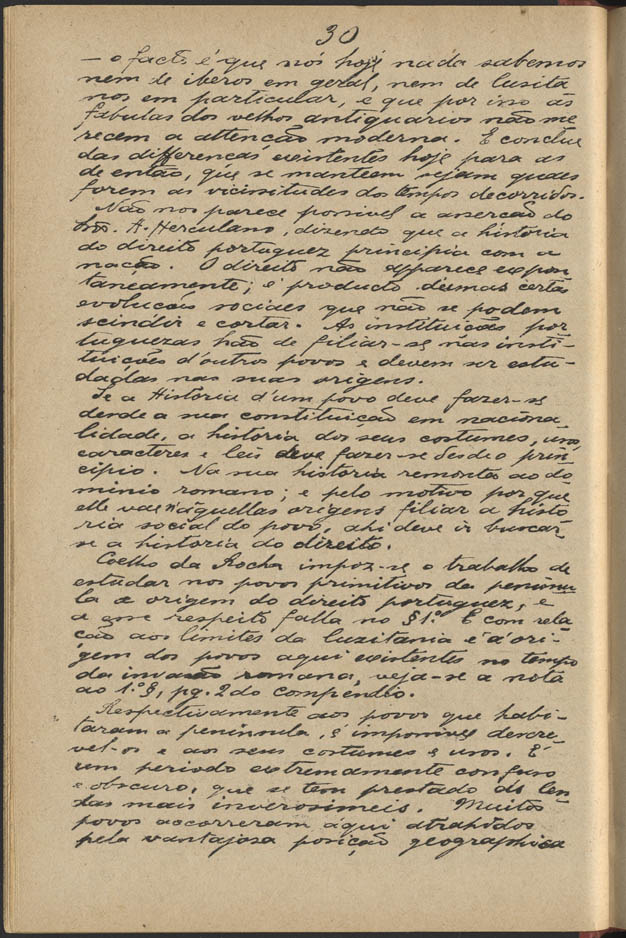 30
— o facto é que nós hoje nada sabemos
nem de iberos em geral, nem de lusita
nos em particular, e que por isso as
fabulas dos velhos antiquarios não me
recem a attenção moderna. E conclue
das differenças existentes hoje para as
de então, que se manteem sejam quaes
forem as vicissitudes dos tempos decorridos.
Não nos parece possivel a asserção do
A. Herculano, dizendo que a historia
do direito portuguez principia com a
nação. O direito não apparece espon
taneamente; é producto dumas certas
evoluções sociaes que não se podem
scindir e cortar. As instituições por
tuguezas hão de filiar-se nas insti-
tuições d'outros povos e devem ser estu-
dadas nas suas origens.
Se a Historia d'um povo deve fazer-se
desde a sua constituição em naciona
lidade, a historia dos seus costumes, usos
caracteres e leis deve fazer-se desde o prin
cipio. Na sua historia remonta ao do
minio romano; e pelo motivo por que
elle vae n'áquellas origens filiar a histo
ria social do povo, ahi deve ir buscar
se a historia do direito.
Coelho da Rocha impoz-se o trabalho de
estudar nos povos primitivos da peninsu
la a origem do direito portuguez, e
a esse respeito falla no § 1.º E com rela
ção aos limites da Luzitania e á ori-
gem dos povos aqui existentes no tempo
da invasão romana, veja-se a nota
ao 1.º §, pg. 2 do compendio.
Respectivamente aos povos que habi-
taram a peninsula, é impossivel descre
vel-os e aos seus costumes e usos. É
um periodo extremamente confuso
e obscuro, que se tem prestado ás len
das mais inverosimeis. Muitos
povos accorreram aqui atrahidos
pela vantajosa posição geographica